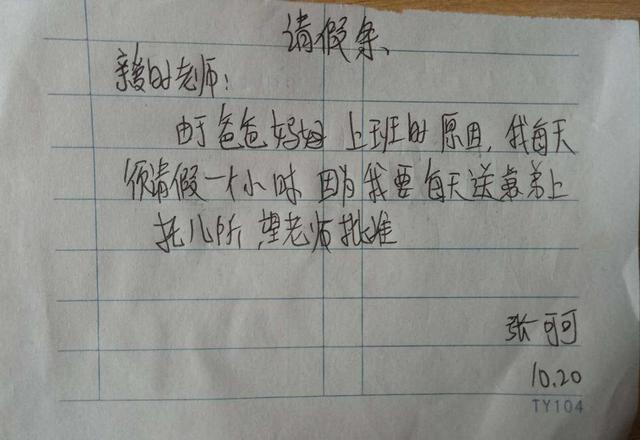 请假条
亲爱的老师:
由于爸爸妈妈 上班的 原因,我每天
须请假一个小时 因为我要每天送弟弟上
托儿所,望老师批准
张可可
10.20
TY104